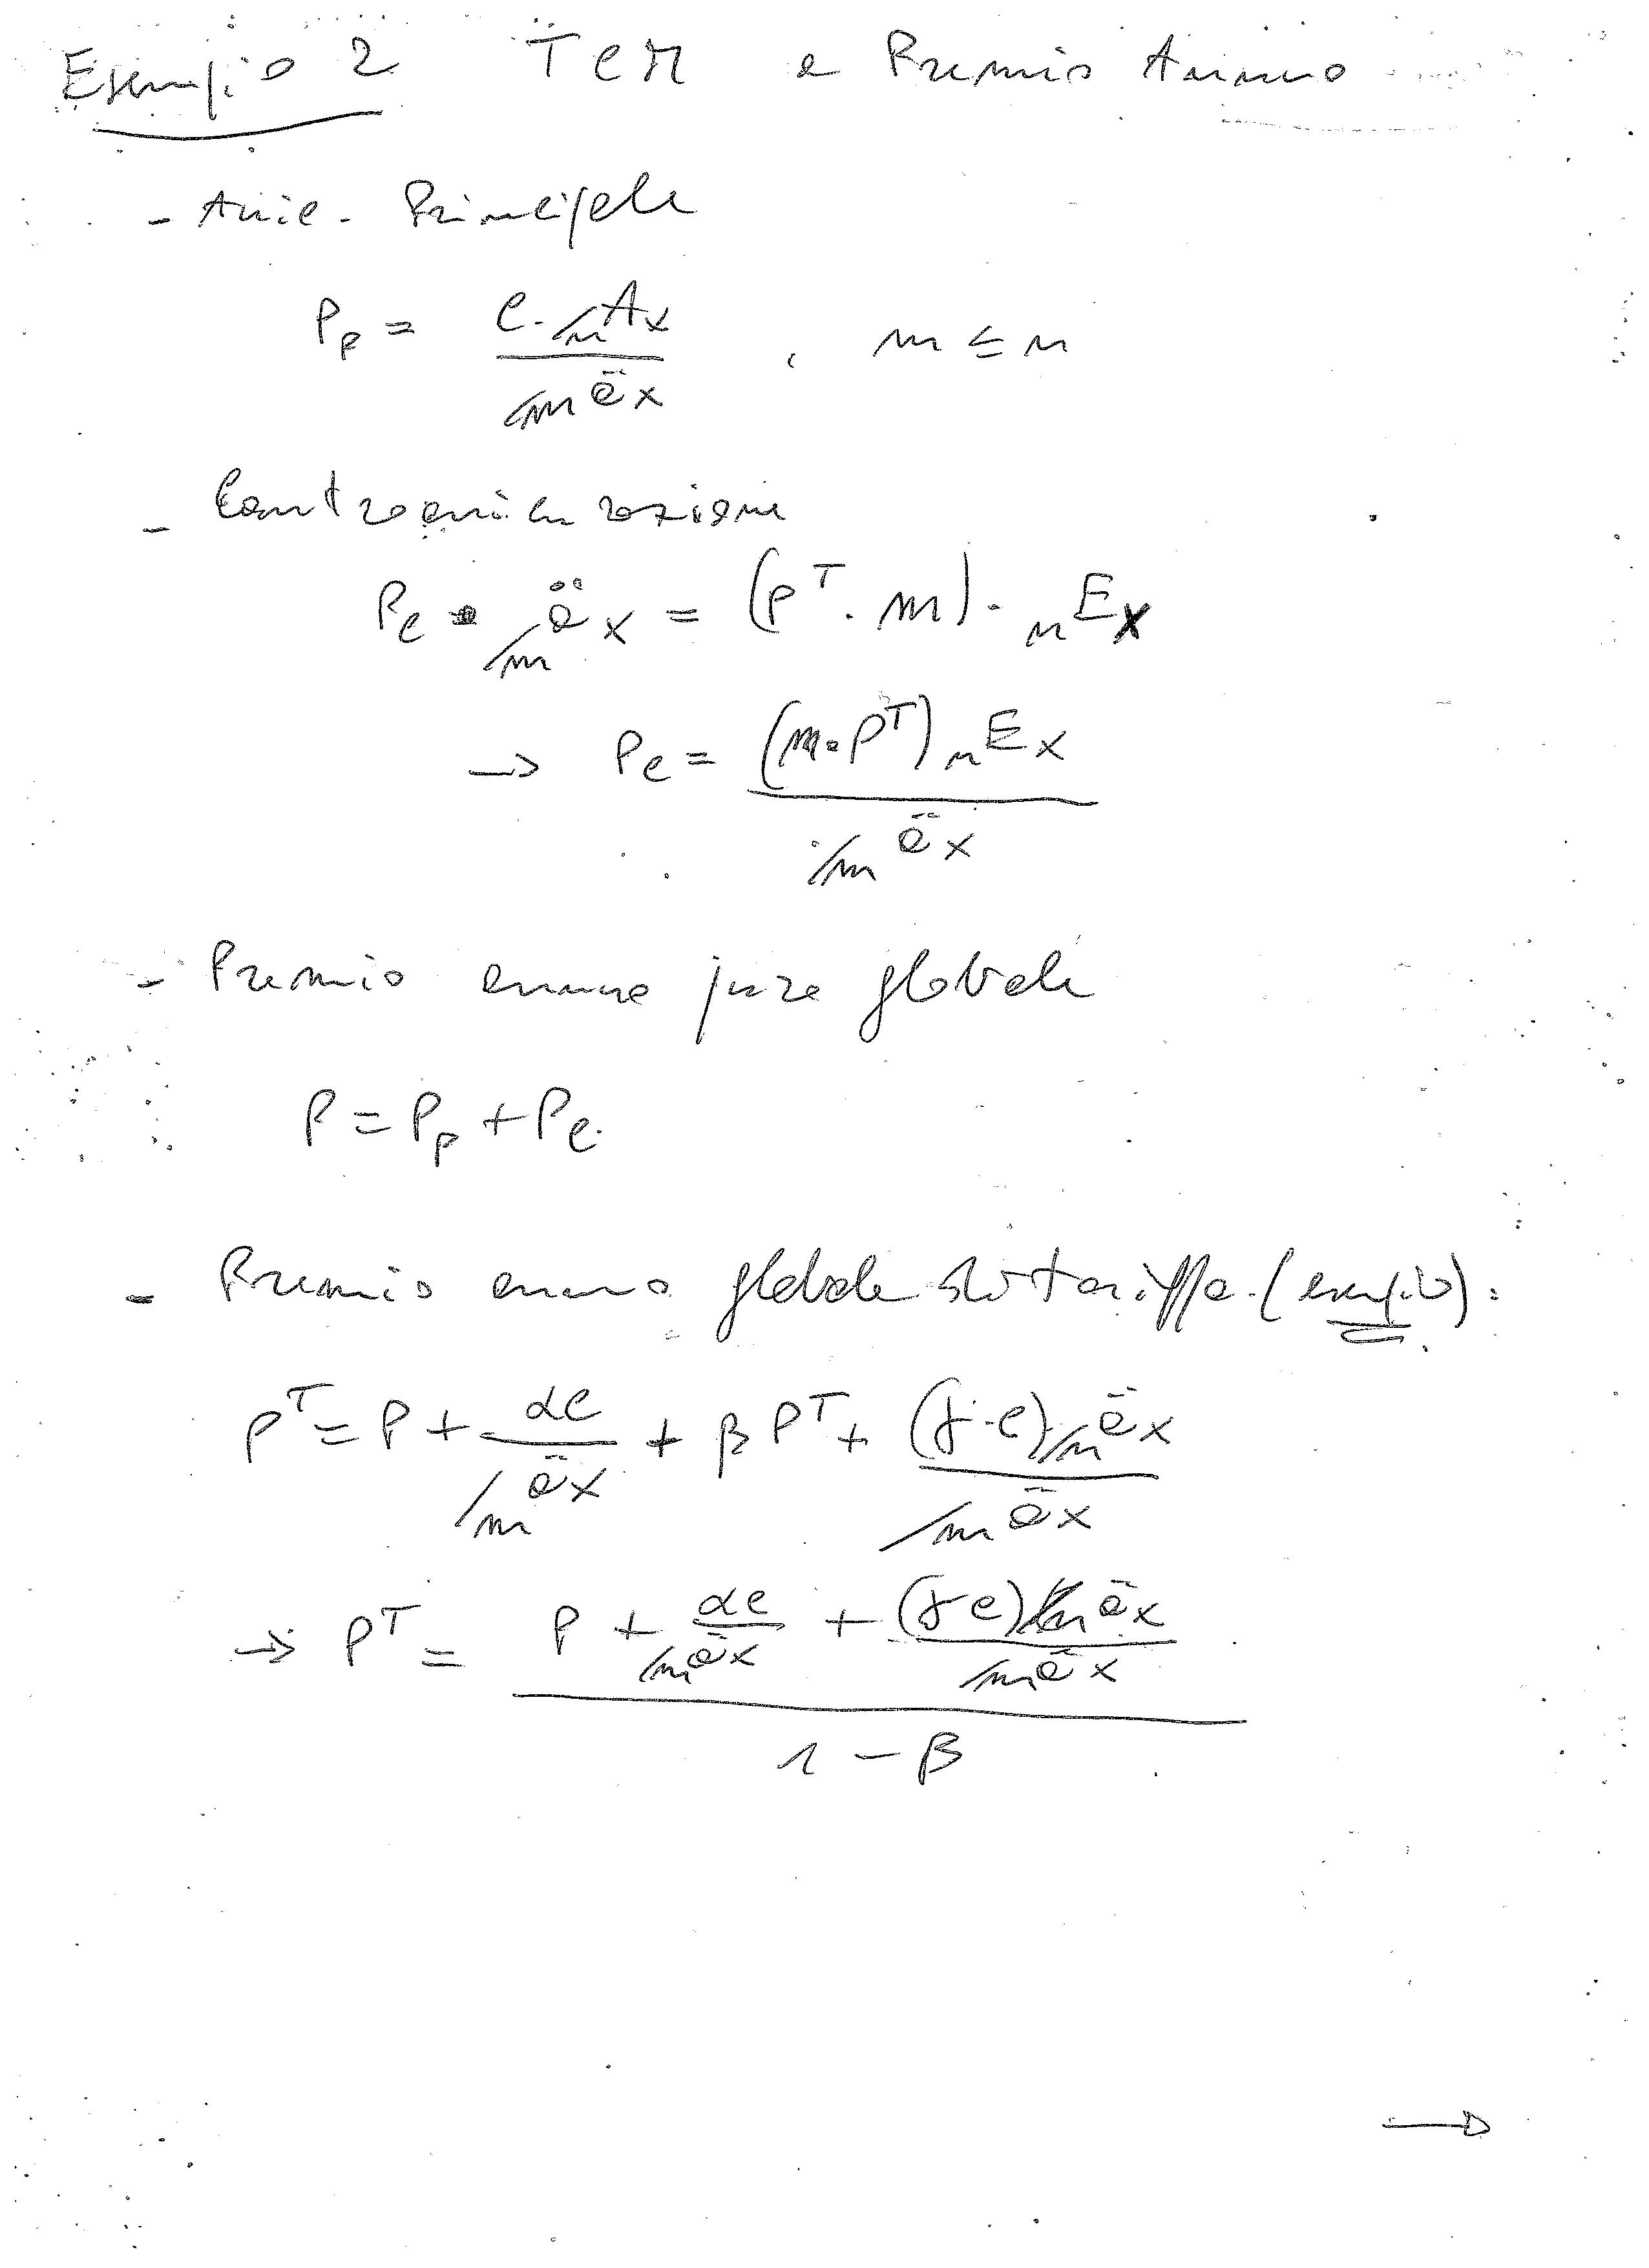 Esempio 2 TCM a Premio Annuo
- Assic. Principale
P_P = C · /nAx / /mäx , m ≤ n
- Controassicurazione
P_C · /mäx = (P^T · m) · nEx
→ P_C = (m · P^T) nEx / /mäx
- Premio annuo puro globale
P = P_P + P_C
- Premio annuo globale di tariffa (esempio):
P^T = P + αC / /mäx + β P^T + (γ · C) /näx / /mäx
→ P^T = P + αC / /mäx + (γ C) /näx / /mäx
1 - β
→